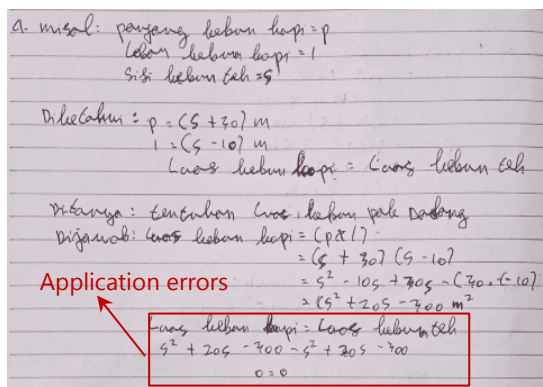 a. misal: panjang kebun kopi = p
lebar kebun kopi = l
sisi kebun teh = s
Diketahui: p = (s + 30) m
l = (s - 10) m
Luas kebun kopi = Luas kebun teh
Ditanya: tentukan Luas kebun pak Dadang
Dijawab: Luas kebun kopi = (p x l)
= (s + 30) (s - 10)
= s² - 10s + 30s - (30 . (-10)
= (s² + 20s - 300 m²
Application errors
Luas kebun kopi = Luas kebun teh
s² + 20s - 300 - s² + 20s - 300
0 = 0